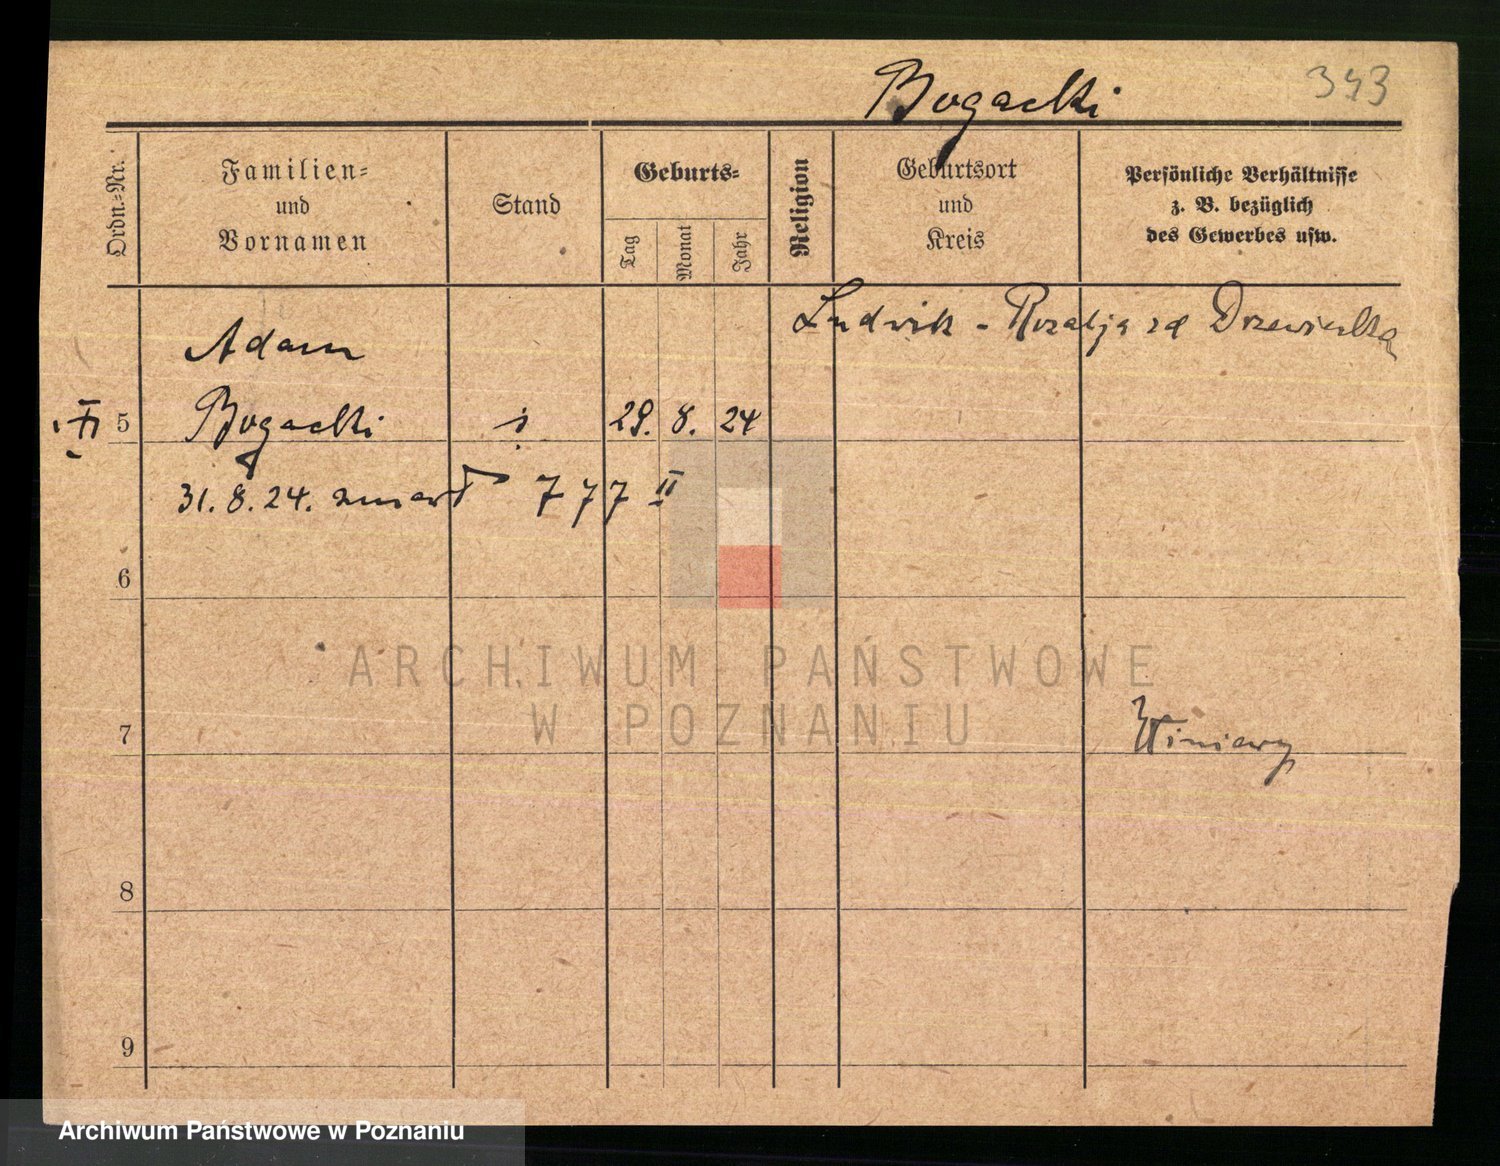 Bogacki
343
Ordn.-Nr.
Familien-
und
Vornamen
Stand
Geburts-
Tag
Monat
Jahr
Religion
Geburtsort
und
Kreis
Persönliche Verhältnisse
z. B. bezüglich
des Gewerbes usw.
Ludwik - Rozalja zd Drzewiecka
Adam
5
Bogacki
29. 8. 24
31. 8. 24. zmarł 777 II
6
ARCHIWUM PAŃSTWOWE
W POZNANIU
7
Winiary
8
9
Archiwum Państwowe w Poznaniu